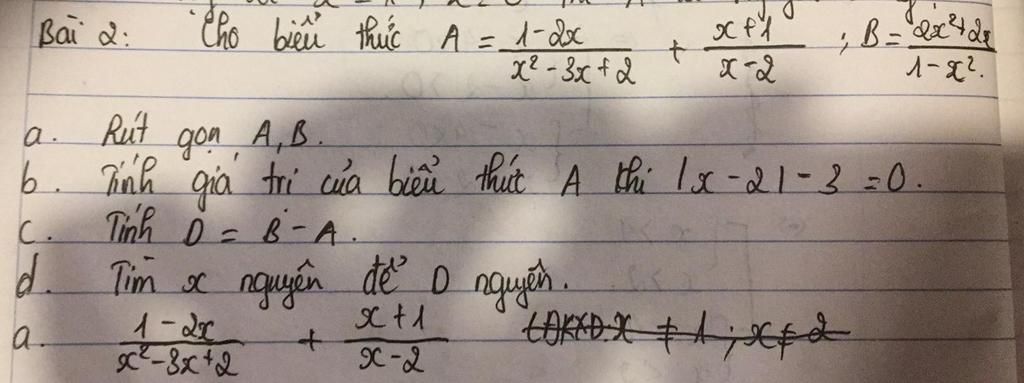 Bài 2: Cho biểu thức A = \frac{1-2x}{x²-3x+2} + \frac{x+1}{x-2} ; B = \frac{2x²+2x}{1-x²}.
a. Rút gọn A, B.
b. Tính giá trị của biểu thức A thi |x-2|-3=0.
c. Tính D = B - A.
d. Tìm x nguyên để D nguyên.
a. \frac{1-2x}{x²-3x+2} + \frac{x+1}{x-2} (ĐKXĐ. x ≠ 1; x ≠ 2